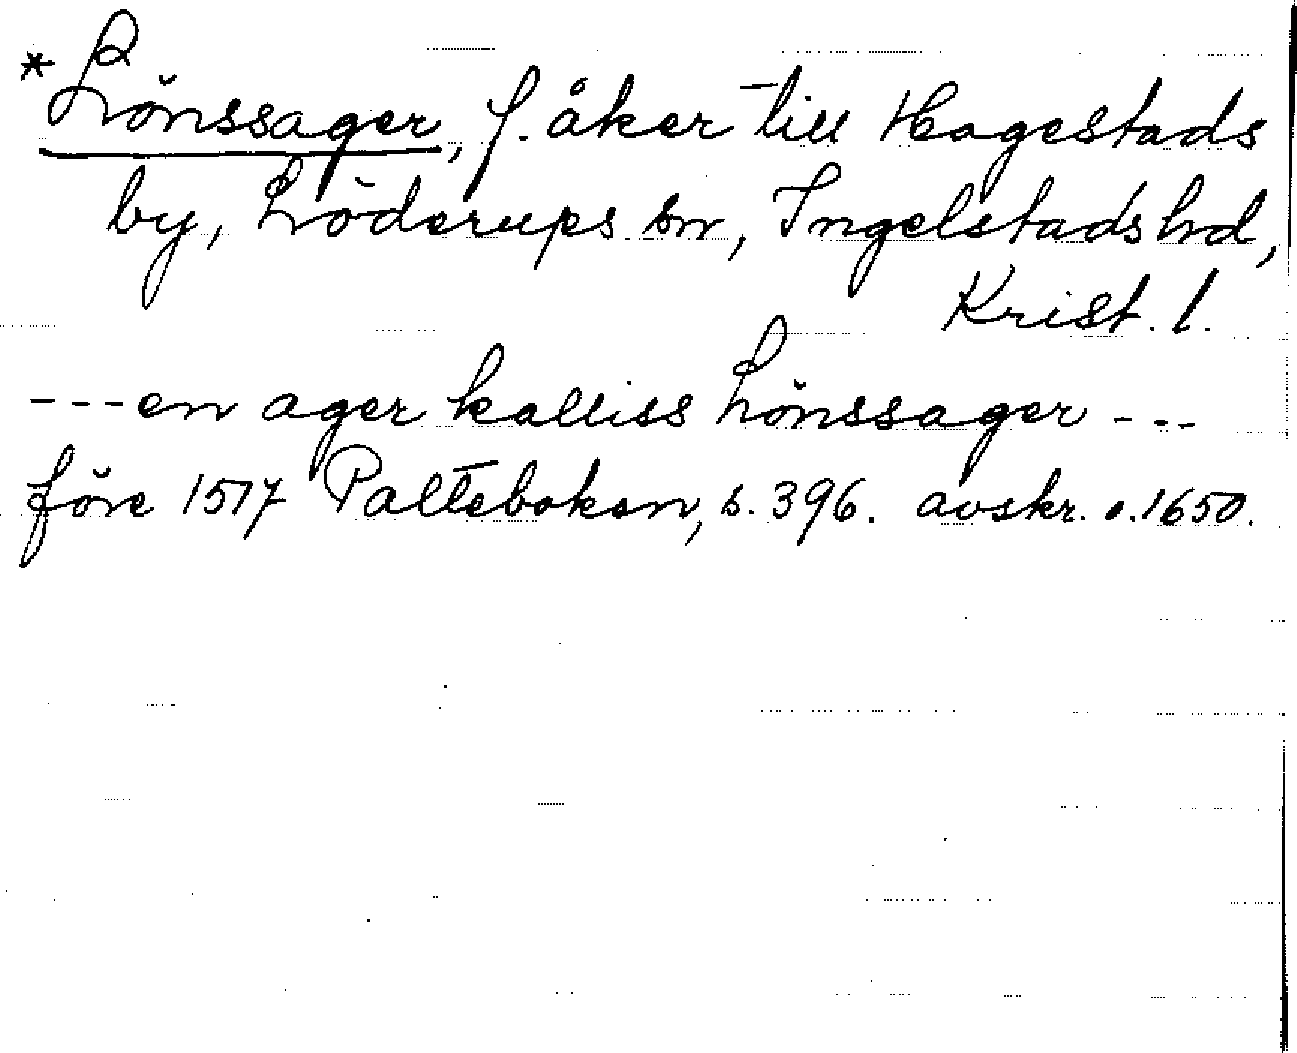 *Lönssager, f. åker till Hagestads
by, Löderups sn, Ingelstads hd,
Krist. l.
---en ager kalliss Lönssager ---
före 1517 Palteboken, s. 396. avskr. o. 1650.